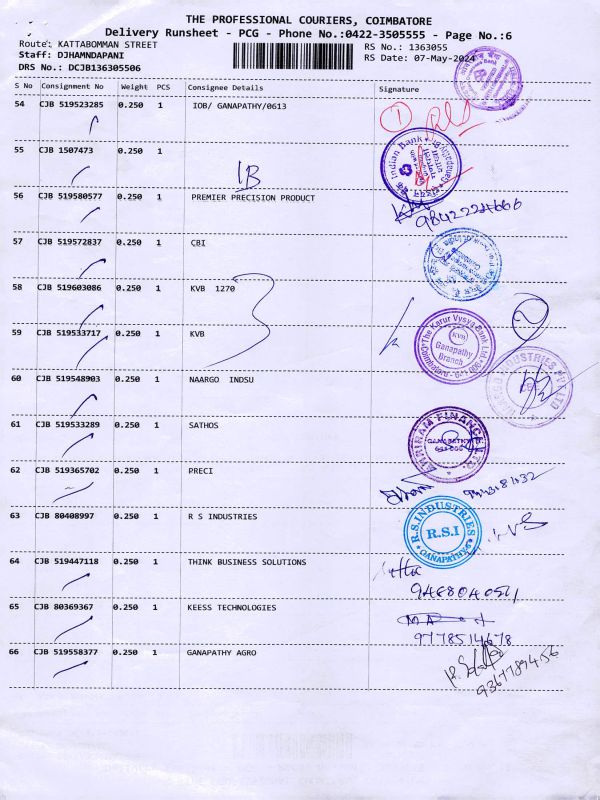 THE PROFESSIONAL COURIERS, COIMBATORE
Delivery Runsheet - PCG - Phone No.:0422-3505555 - Page No.:6
Route: KATTABOMMAN STREET RS No.: 1363055
Staff: DJHAMNDAPANI RS Date: 07-May-2024
DRS No.: DCJB136305506
S No Consignment No Weight PCS Consignee Details Signature
54 CJB 519523285 0.250 1 IOB/ GANAPATHY/0613
1
55 CJB 1507473 0.250 1
Indian Bank
IB
56 CJB 519580577 0.250 1 PREMIER PRECISION PRODUCT
9842224666
57 CJB 519572837 0.250 1 CBI
58 CJB 519603086 0.250 1 KVB 1270
59 CJB 519533717 0.250 1 KVB
The Karur Vysya Bank Ltd.
KVB
Ganapathy
Branch
60 CJB 519548903 0.250 1 NAARGO INDSU
INDUSTRIES PVT LTD
61 CJB 519533289 0.250 1 SATHOS
SHRIRAM FINANCE LTD.
62 CJB 519365702 0.250 1 PRECI
63 CJB 80408997 0.250 1 R S INDUSTRIES
R.S.INDUSTRIES
R.S.I
GANAPATHY
64 CJB 519447118 0.250 1 THINK BUSINESS SOLUTIONS
65 CJB 80369367 0.250 1 KEESS TECHNOLOGIES
9778514678
66 CJB 519558377 0.250 1 GANAPATHY AGRO
9367789456